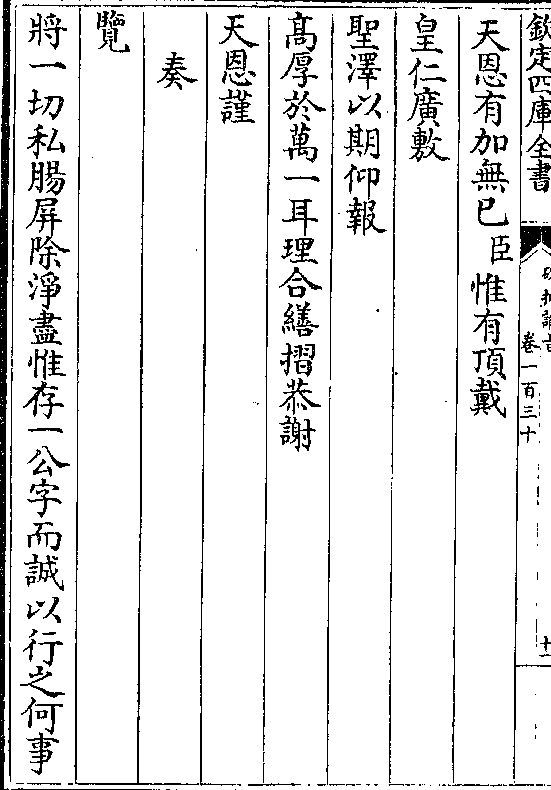 欽定四庫全書
卷一百三十
天恩有加無已臣惟有頂戴
皇仁廣敷
聖澤以期仰報
髙厚於萬一耳理合繕摺恭謝
天恩謹
奏
覽
將一切私腸屏除淨盡惟存一公字而誠以行之何事